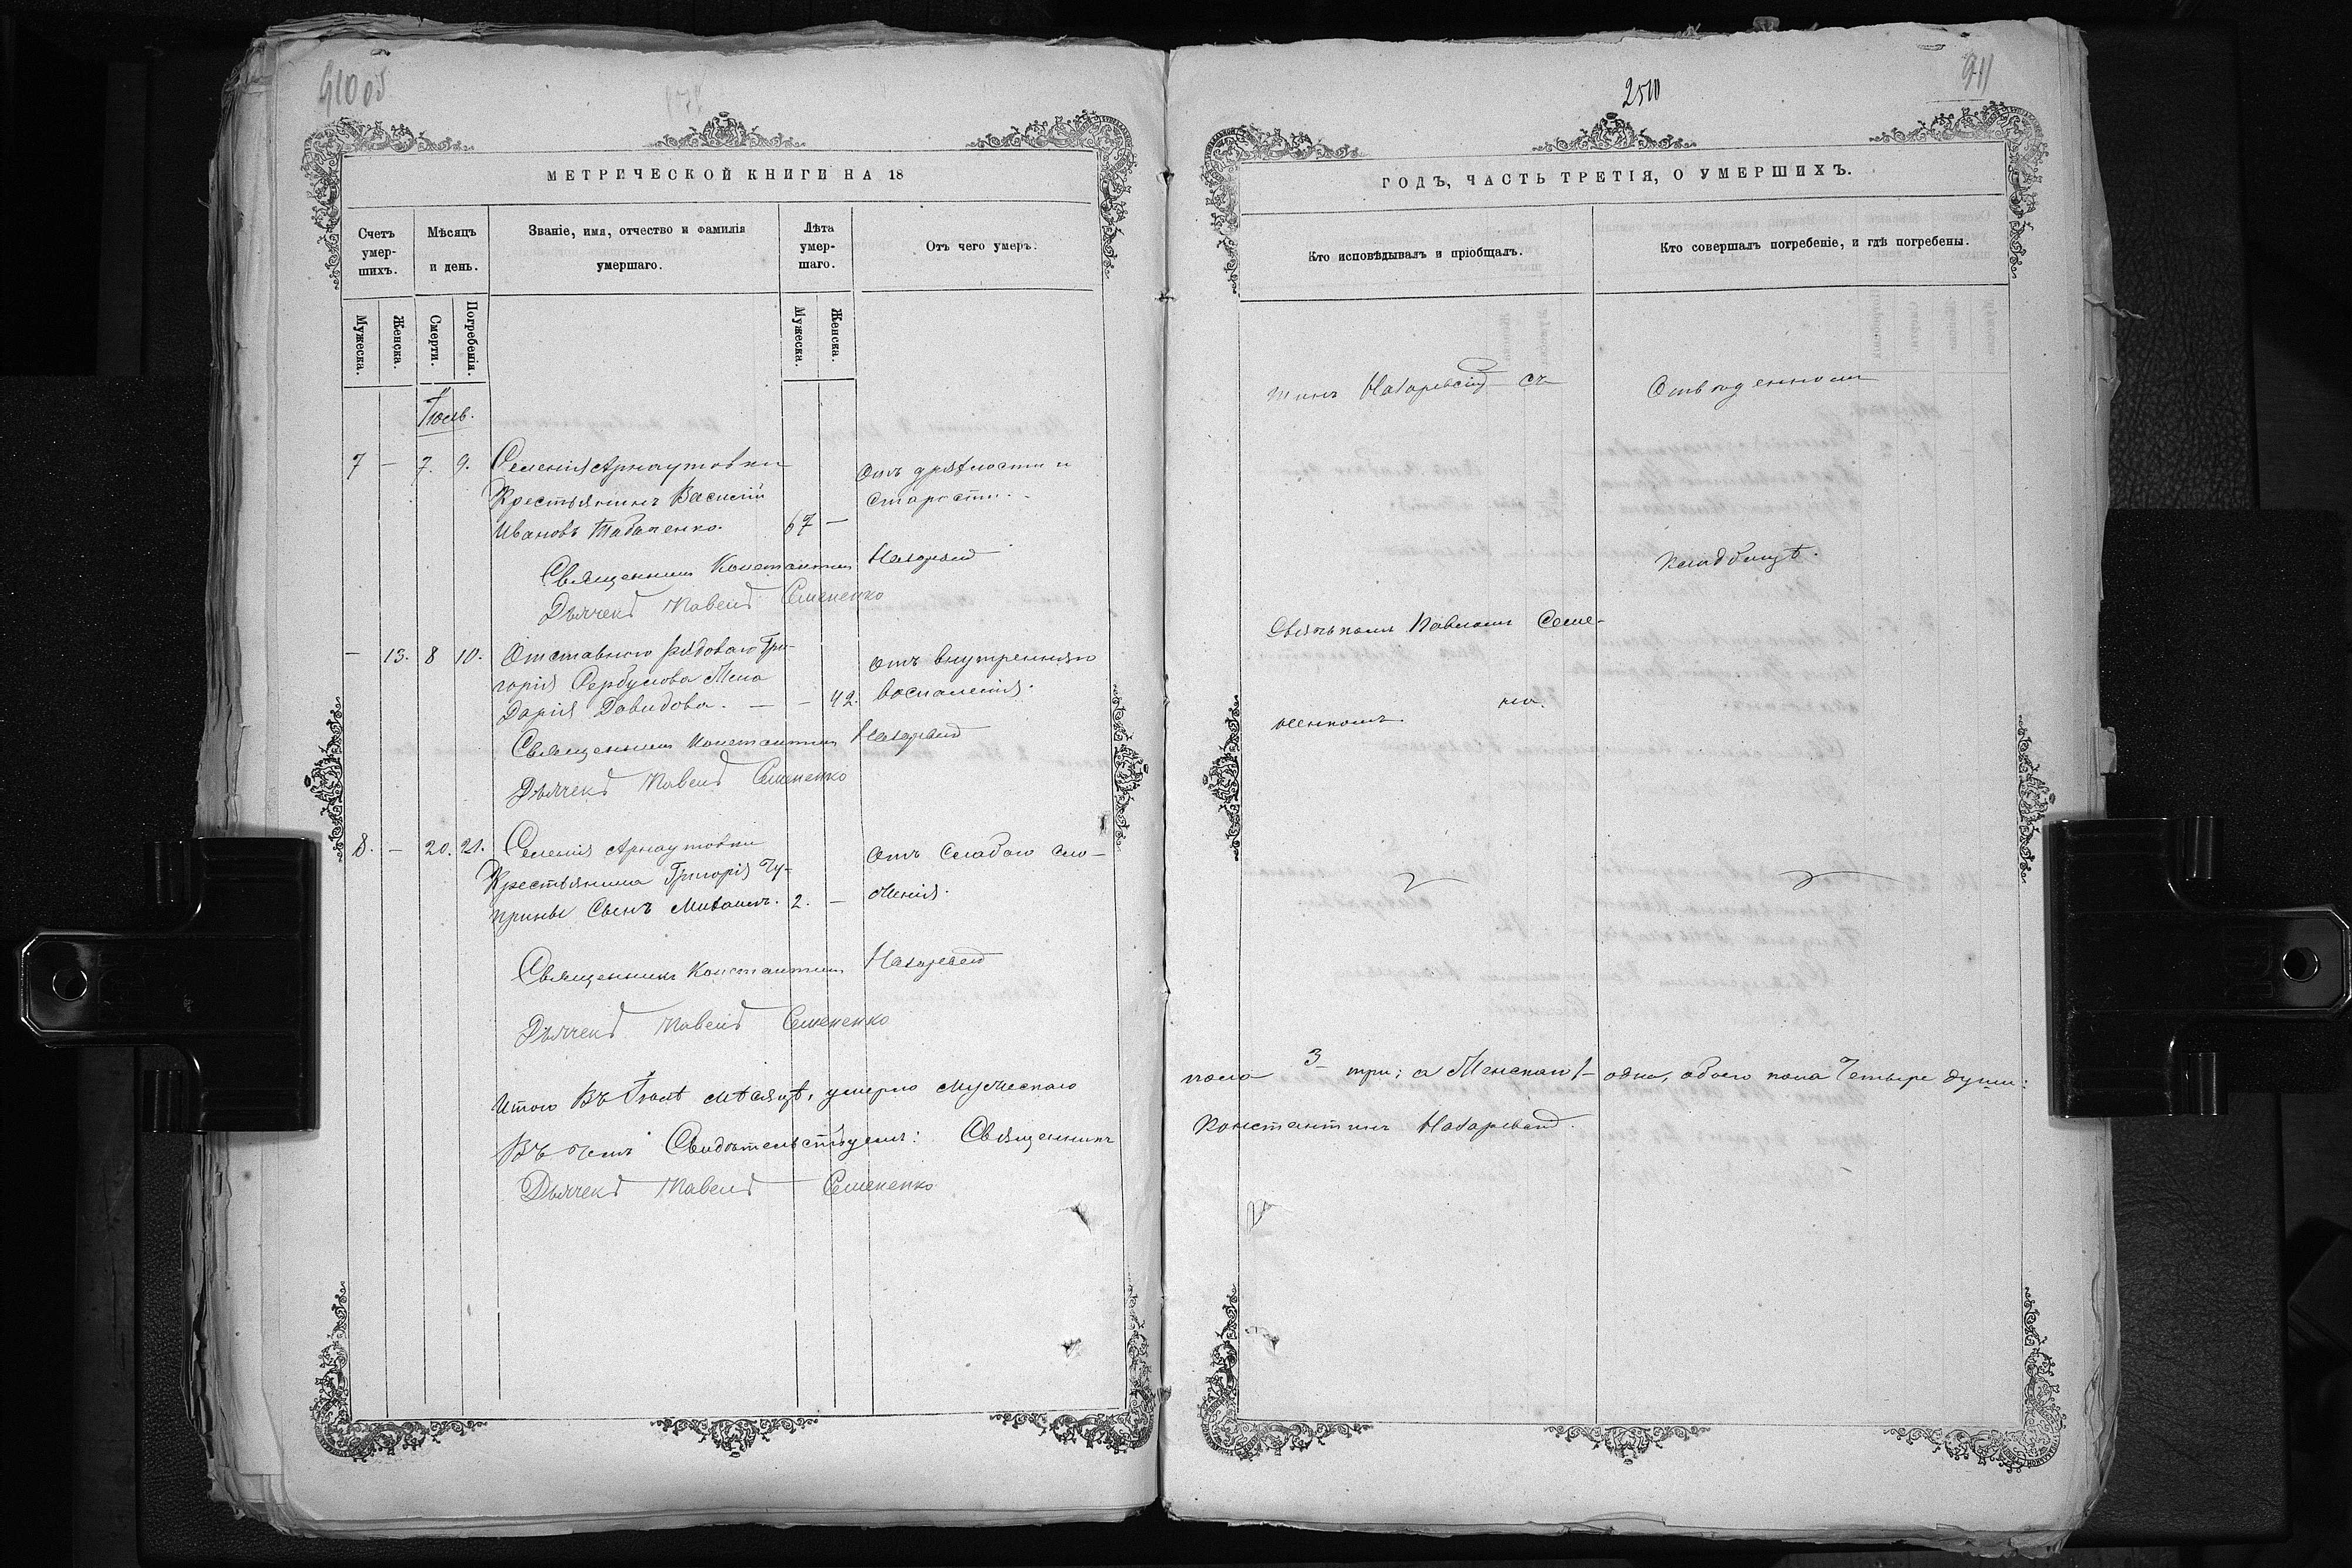 910 об
МЕТРИЧЕСКОЙ КНИГИ НА 18
Счетъ умер-шихъ.
Мѣсяцъ и день.
Званіе, имя, отчество и фамилія умершаго.
Лѣта умер-шаго.
Отъ чего умеръ.
Мужеска.
Женска.
Смерти.
Погребенія.
Мужеска.
Женска.
Іюль.
7 — 7. 9. Селенія Арнаутовки
Крестьянинъ Василій
Ивановъ Табаченко. 67 —
отъ дряхлости и
старости.
Священникъ Константинъ Назаревскій
Дьячекъ Павелъ Семененко
— 13. 8 10. Отставного рядового Гри-
горія Сербулова Жена
Дарія Давидова. — — 42.
отъ внутренняго
воспаленія.
Священникъ Константинъ Назаревскій
Дьячекъ Павелъ Семененко
8. — 20. 21. Селенія Арнаутовки
Крестьянина Григорія Чу-
прины Сынъ Михаилъ. 2. —
отъ Слабаго Сло-
женія.
Священникъ Константинъ Назаревскій
Дьячекъ Павелъ Семененко
Итого Въ Іюлѣ мѣсяцѣ, умерло мужескаго
Въ чемъ Свидѣтельствуемъ: Священникъ
Дьячекъ Павелъ Семененко
2510
911
ГОДЪ, ЧАСТЬ ТРЕТІЯ, О УМЕРШИХЪ.
Кто исповѣдывалъ и пріобщалъ.
Кто совершалъ погребеніе, и гдѣ погребены.
тинъ Назаревскій съ
Отведенномъ
Кладбищѣ.
Павломъ Семе-
ненкомъ. на
пола 3 три; а Женскаго 1 одна, обоего пола Четыре души:
Константинъ Назаревскій.